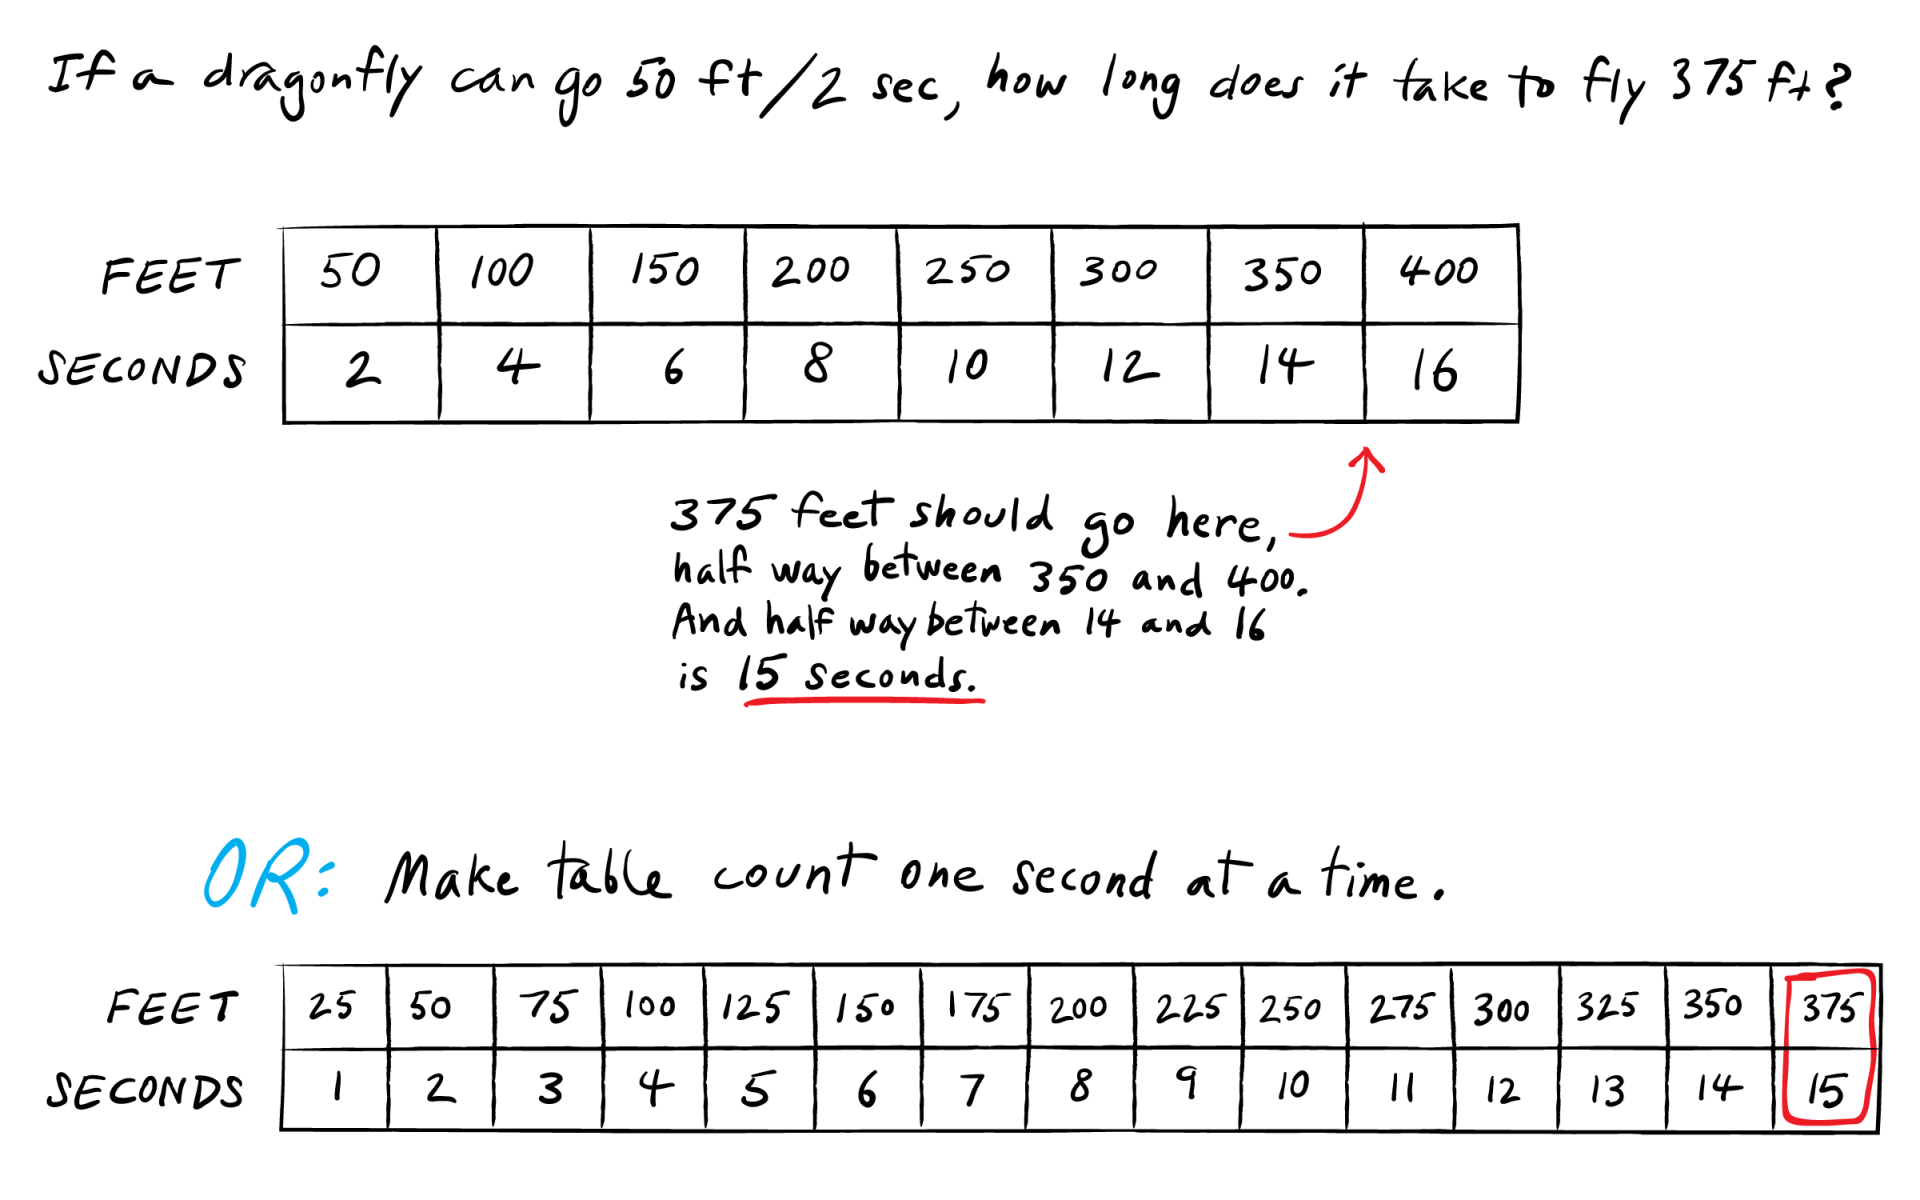 If a dragonfly can go 50 ft/2 sec, how long does it take to fly 375 ft?
FEET 50 100 150 200 250 300 350 400
SECONDS 2 4 6 8 10 12 14 16
375 feet should go here,
half way between 350 and 400.
And half way between 14 and 16
is 15 seconds.
OR: Make table count one second at a time.
FEET 25 50 75 100 125 150 175 200 225 250 275 300 325 350 375
SECONDS 1 2 3 4 5 6 7 8 9 10 11 12 13 14 15